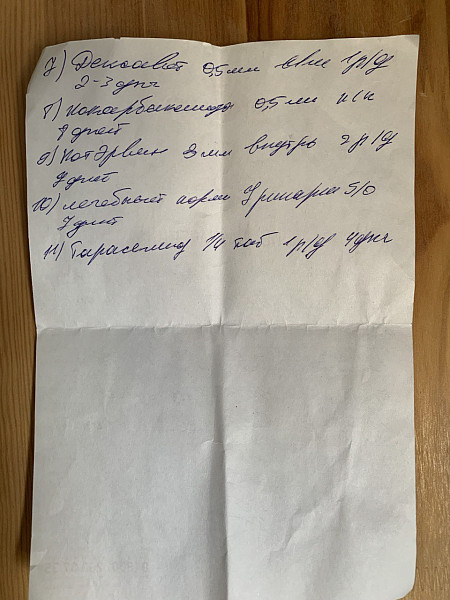 7) Дексават 0,5 мл в/м 1 р/д
2-3 дня
8) Кокарбоксилаза 0,5 мл п/к
7 дней
9) КотЭрвин 3 мл внутрь 2 р/д
7 дней
10) лечебный корм Уринари S/O
7 дней
11) Торасемид 1/4 таб 1 р/д 4 дня